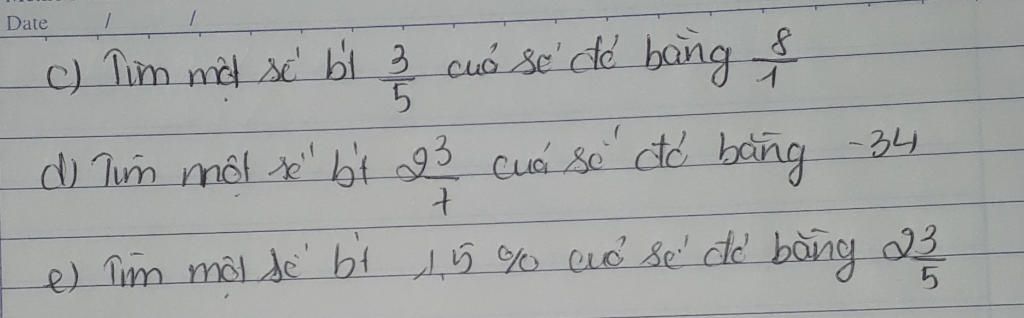 Date / /
c) Tìm một số bt 3/5 cuả số đó bằng 8/1
d) Tìm một số bt 2 3/7 cuả số đó bằng -34
e) Tìm một số bt 1,5 % cuả số đó bằng 2 3/5